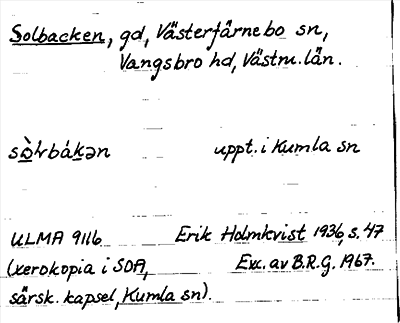 Solbacken, gd, Västerfärnebo sn,
Vangsbro hd, Västm. län.
sò̱lbákən uppt. i Kumla sn
ULMA 9116 Erik Holmkvist 1936, s. 47
(xerokopia i SOA, Exc. av B.R.G. 1967.
särsk. kapsel, Kumla sn).